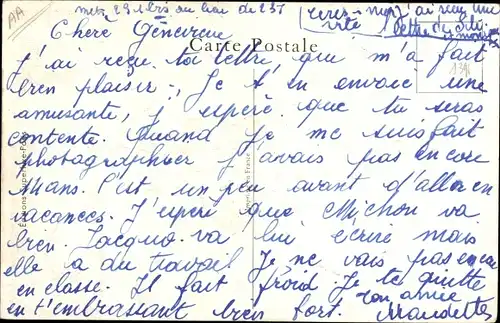 AA
mets 29 bis au lieu de 237
(écris-moi vite) j'ai reçu une lettre de
Chère Geneviève
Carte Postale
J'ai reçu ta lettre, qui m'a fait
bien plaisir. Je t'en envoie une
amusante, j'espère que tu seras
contente. Quand je me suis fait
photographier j'avais pas encore
ans. C'est un peu avant d'aller en
vacances. J'espère que Michou va
bien. Jacquo va lui écrire mais
elle a du travail Je ne vais pas encore
en classe. Il fait froid. Je te quitte
en t'embrassant bien fort. ton amie
Claudette